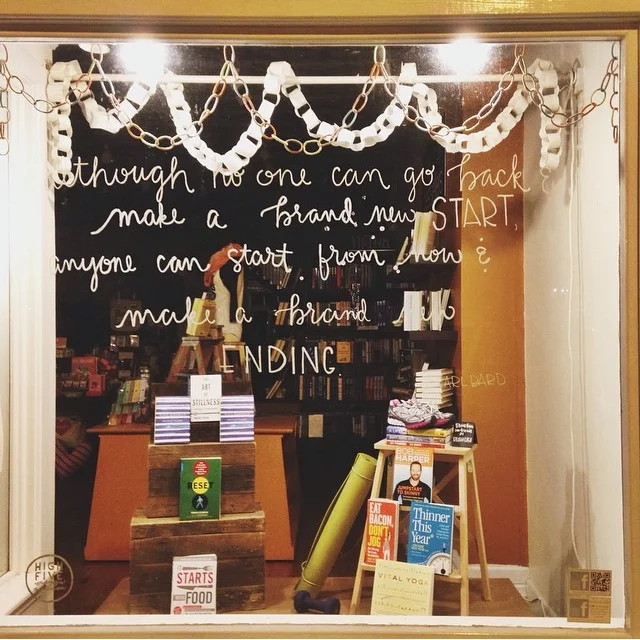 although no one can go back &
make a brand new START,
anyone can start from now &
make a brand new
ENDING.
CARL BARD
THE
ART OF
STILLNESS
RESET
IT
STARTS
WITH
FOOD
BOB
HARPER
JUMPSTART
TO SKINNY
EAT
BACON,
DON'T
JOG
Thinner
This
Year
VITAL YOGA
HIGH
FIVE
f
f